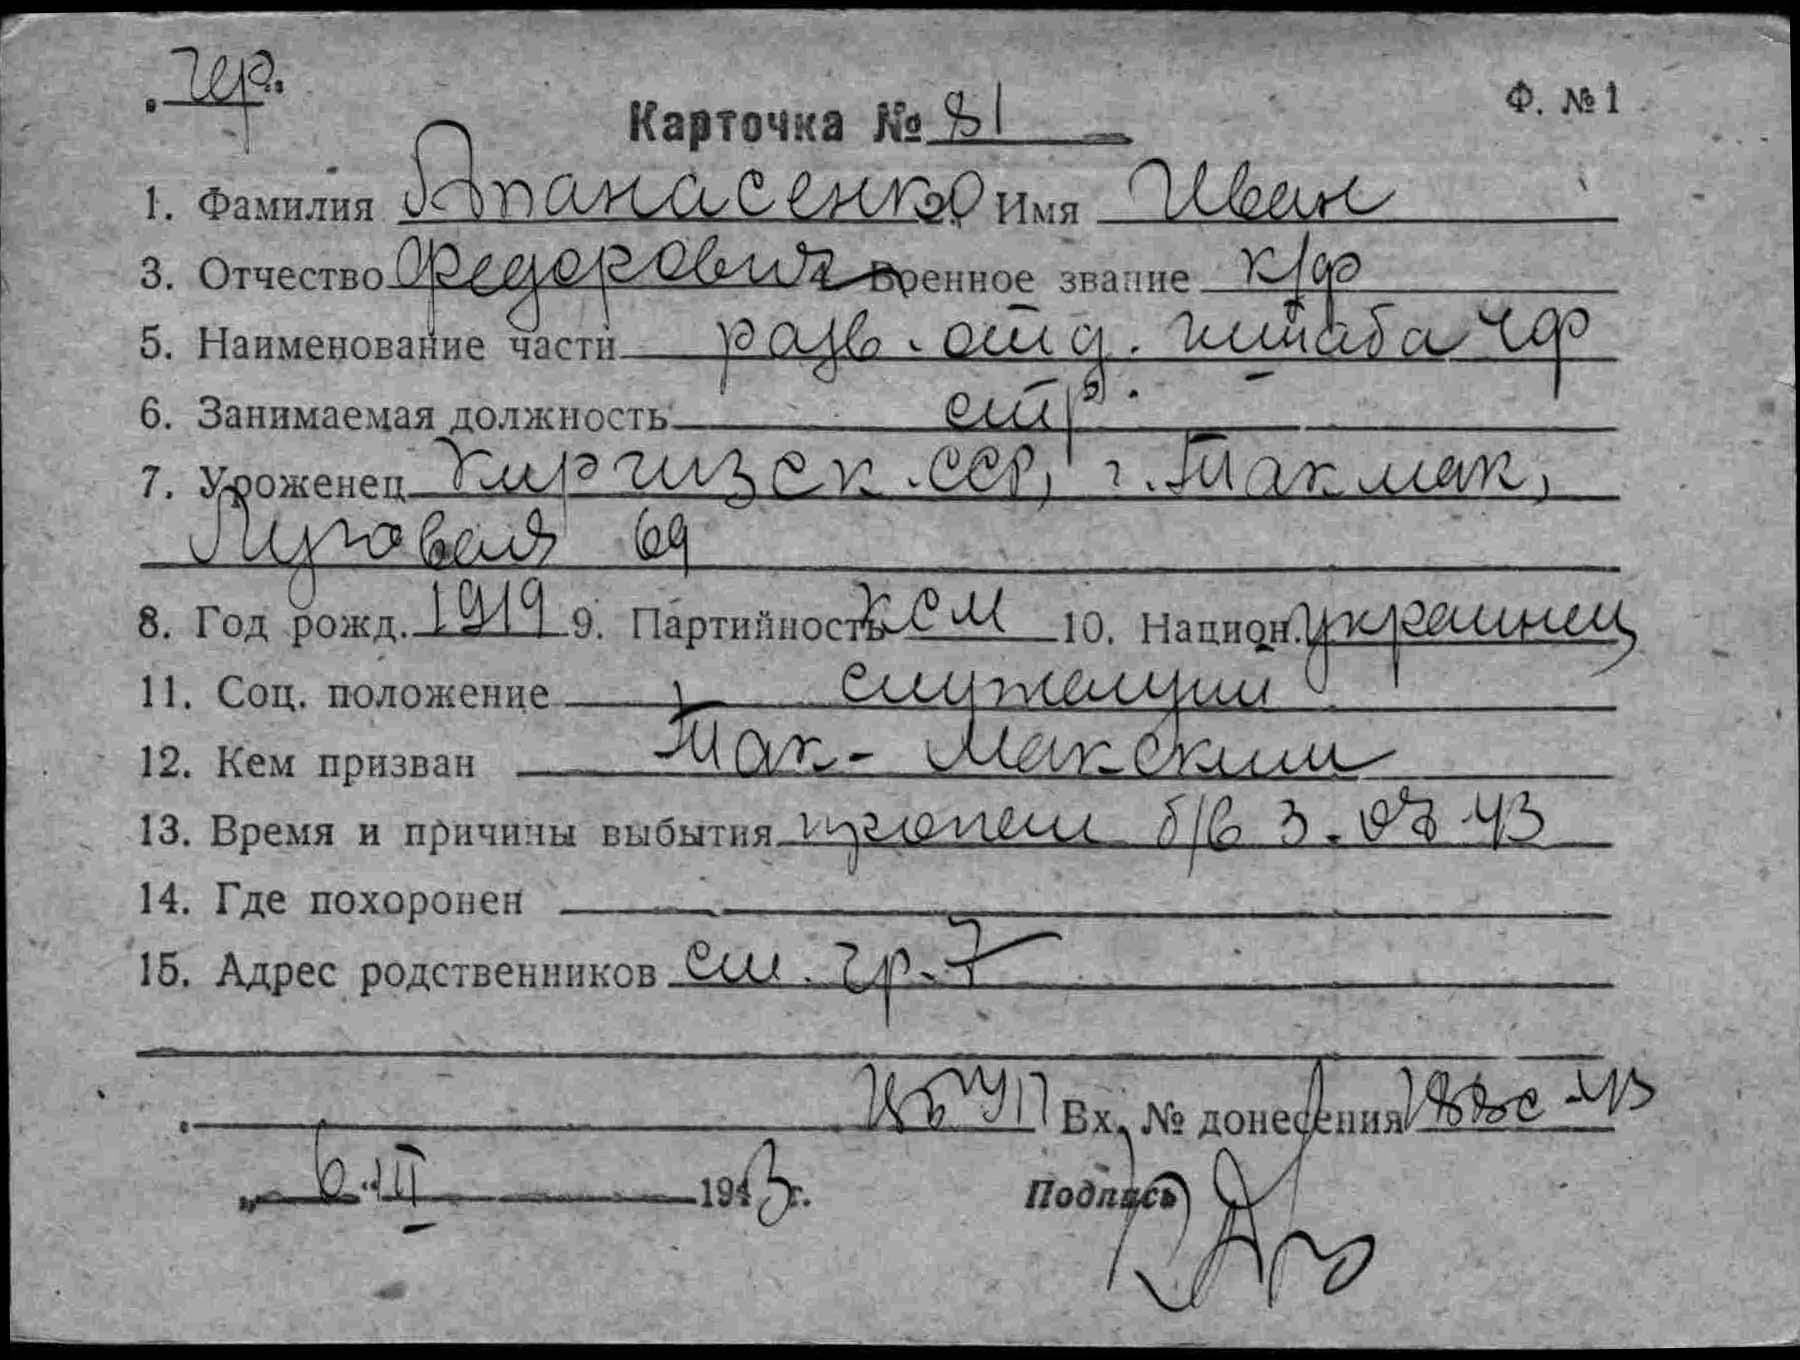 чер.
Ф. № 1
Карточка № 81
1. Фамилия Апанасенко Имя Иван
3. Отчество Федорович Военное звание к/ф
5. Наименование части разв. отд. штаба ЧФ
6. Занимаемая должность стр.
7. Уроженец Киргизск. ССР, г. Такмак,
Луговая 69
8. Год рожд. 1919 9. Партийность КСМ 10. Национ. украинец
11. Соц. положение служащий
12. Кем призван Так-Макским
13. Время и причины выбытия пропал б/в 3. 43
14. Где похоронен
15. Адрес родственников см. гр. 7
Вх. № донесения
„ 6 “ III 1943 г. Подпись